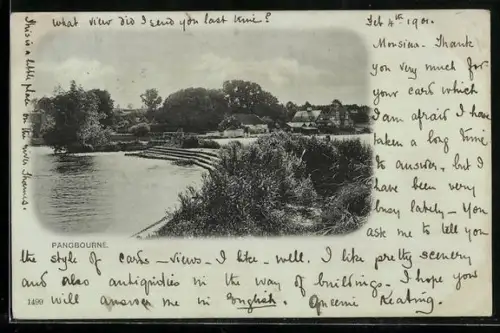 what view did I send you last time?
This is a little place on the river Thames.
Feb 4th 1901.
Monsina - Thank
you very much for
your card which
I am afraid I have
taken a long time
to answer, but I
have been very
busy lately - You
ask me to tell you
the style of cards - views - I like - well. I like pretty scenery
and also antiquities in the way of buildings. I hope you
will answer me in English. Queenie Keating.
PANGBOURNE.
1499